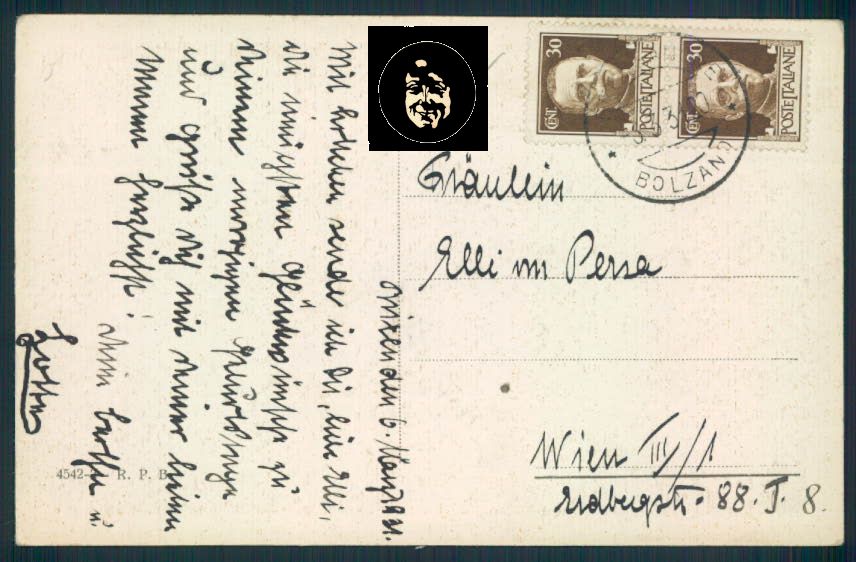 Brixen den 6. März
Mit solchen sende ich Dir, liebe Elli,
die innigsten Glückwünsche zu
Deinem morgigen Geburtstage
und grüße Dich mit Deiner lieben
Mamma herzlichst!
Dein
Fräulein
Elli von Persa
Wien III/1
Erdbergstr. 88. I. 8.
CENT. 30
POSTE ITALIANE
CENT. 30
POSTE ITALIANE
BOLZANO
4542
R. P. B.